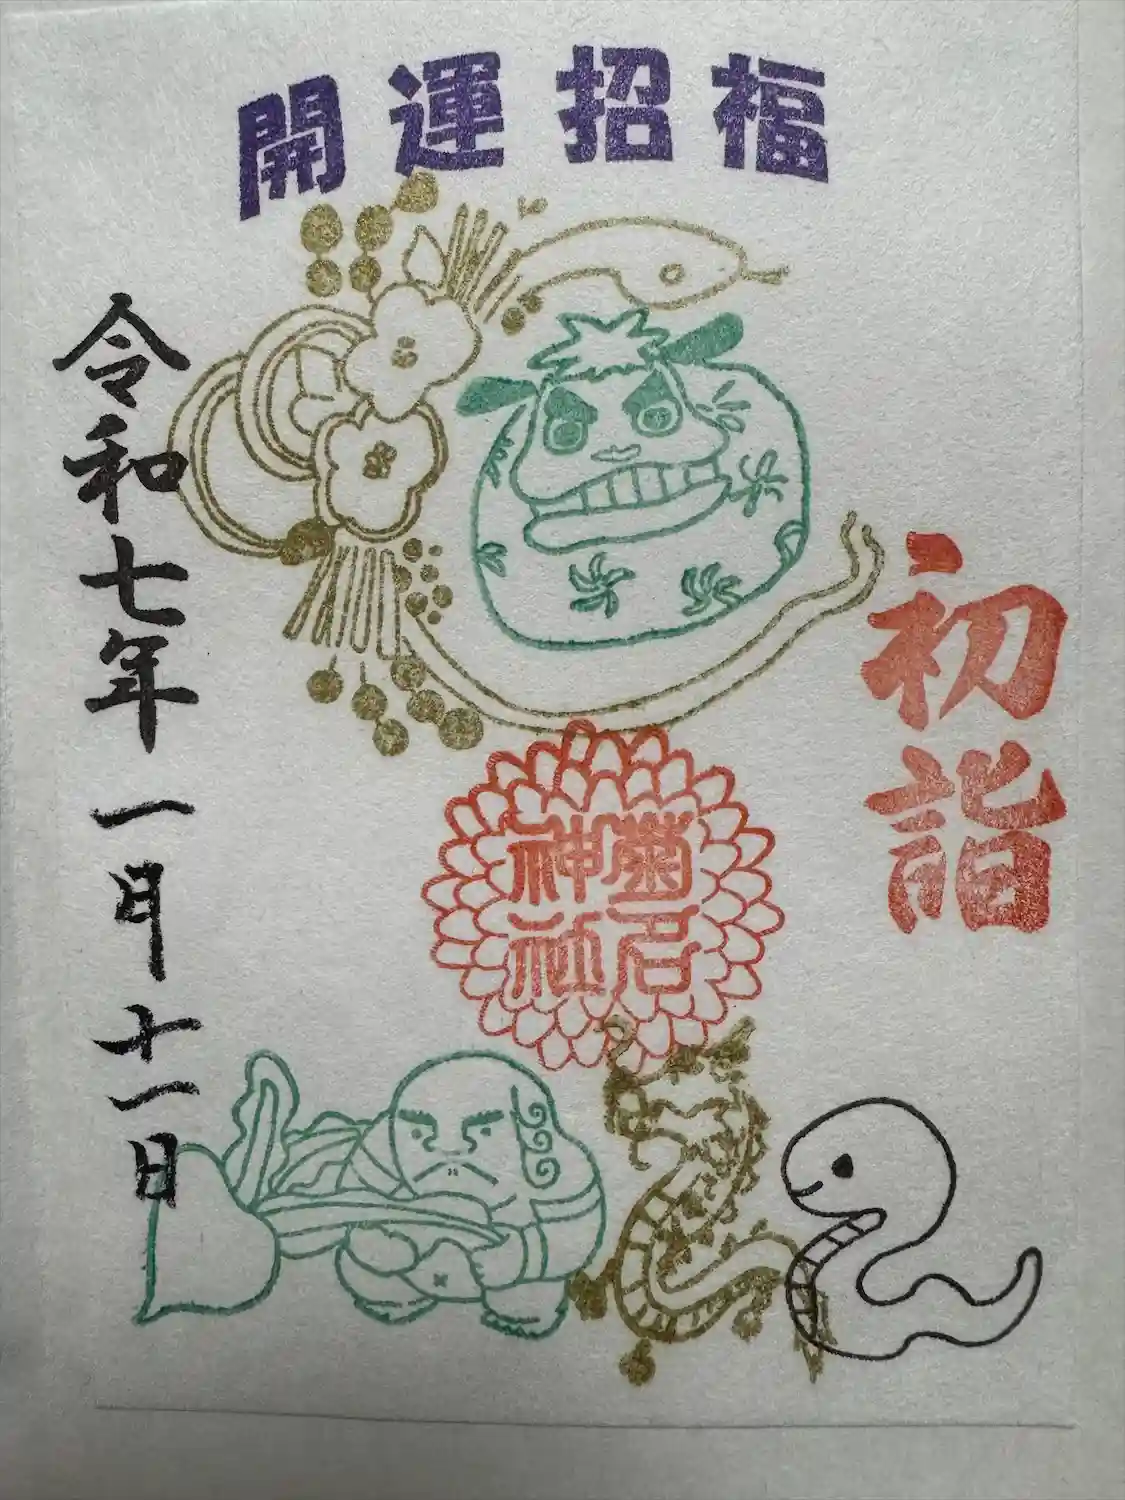 開運招福
初詣
菊名神社
令和七年一月十一日